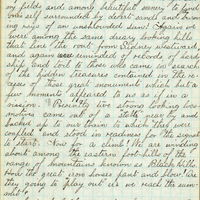 in fields and among beautiful scenery to find
ourselves surrounded by desert sand and burn-
ing rays of an unclouded sun! Again we
were among the same dreary looking hills
that line the route from Sidney westward,
and again were reminded of records of hard-
ship and toil to those who came in search
of the hidden treasures contained in the re-
cesses of those great monuments which but a
few moments appeared to us as if in a
vision. Presently two strong looking loco-
motives came out of a stall near by and
backed up to our train to which they were
coupled and stood in readiness for the signal
to start. Now for a climb! We are winding
about among the eastern foot-hills of the
range of mountains known as Black Hills.
How the great iron horses pant and blow! Are
they going to play out ere we reach the sum-
mit?